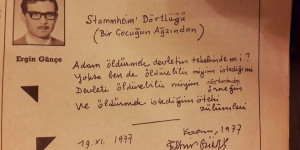 Stammheim Dörtlüğü
(Bir Çocuğun Ağzından)
Ergin Günçe
Adam öldürmek devletin tekelinde mi?
Yoksa ben de öldürebilir miyim istediğimi
Devleti öldürebilir miyim örneğin
Ve öldürmek istediğim öteki
zulümleri
19.XI.1977
Kasım, 1977